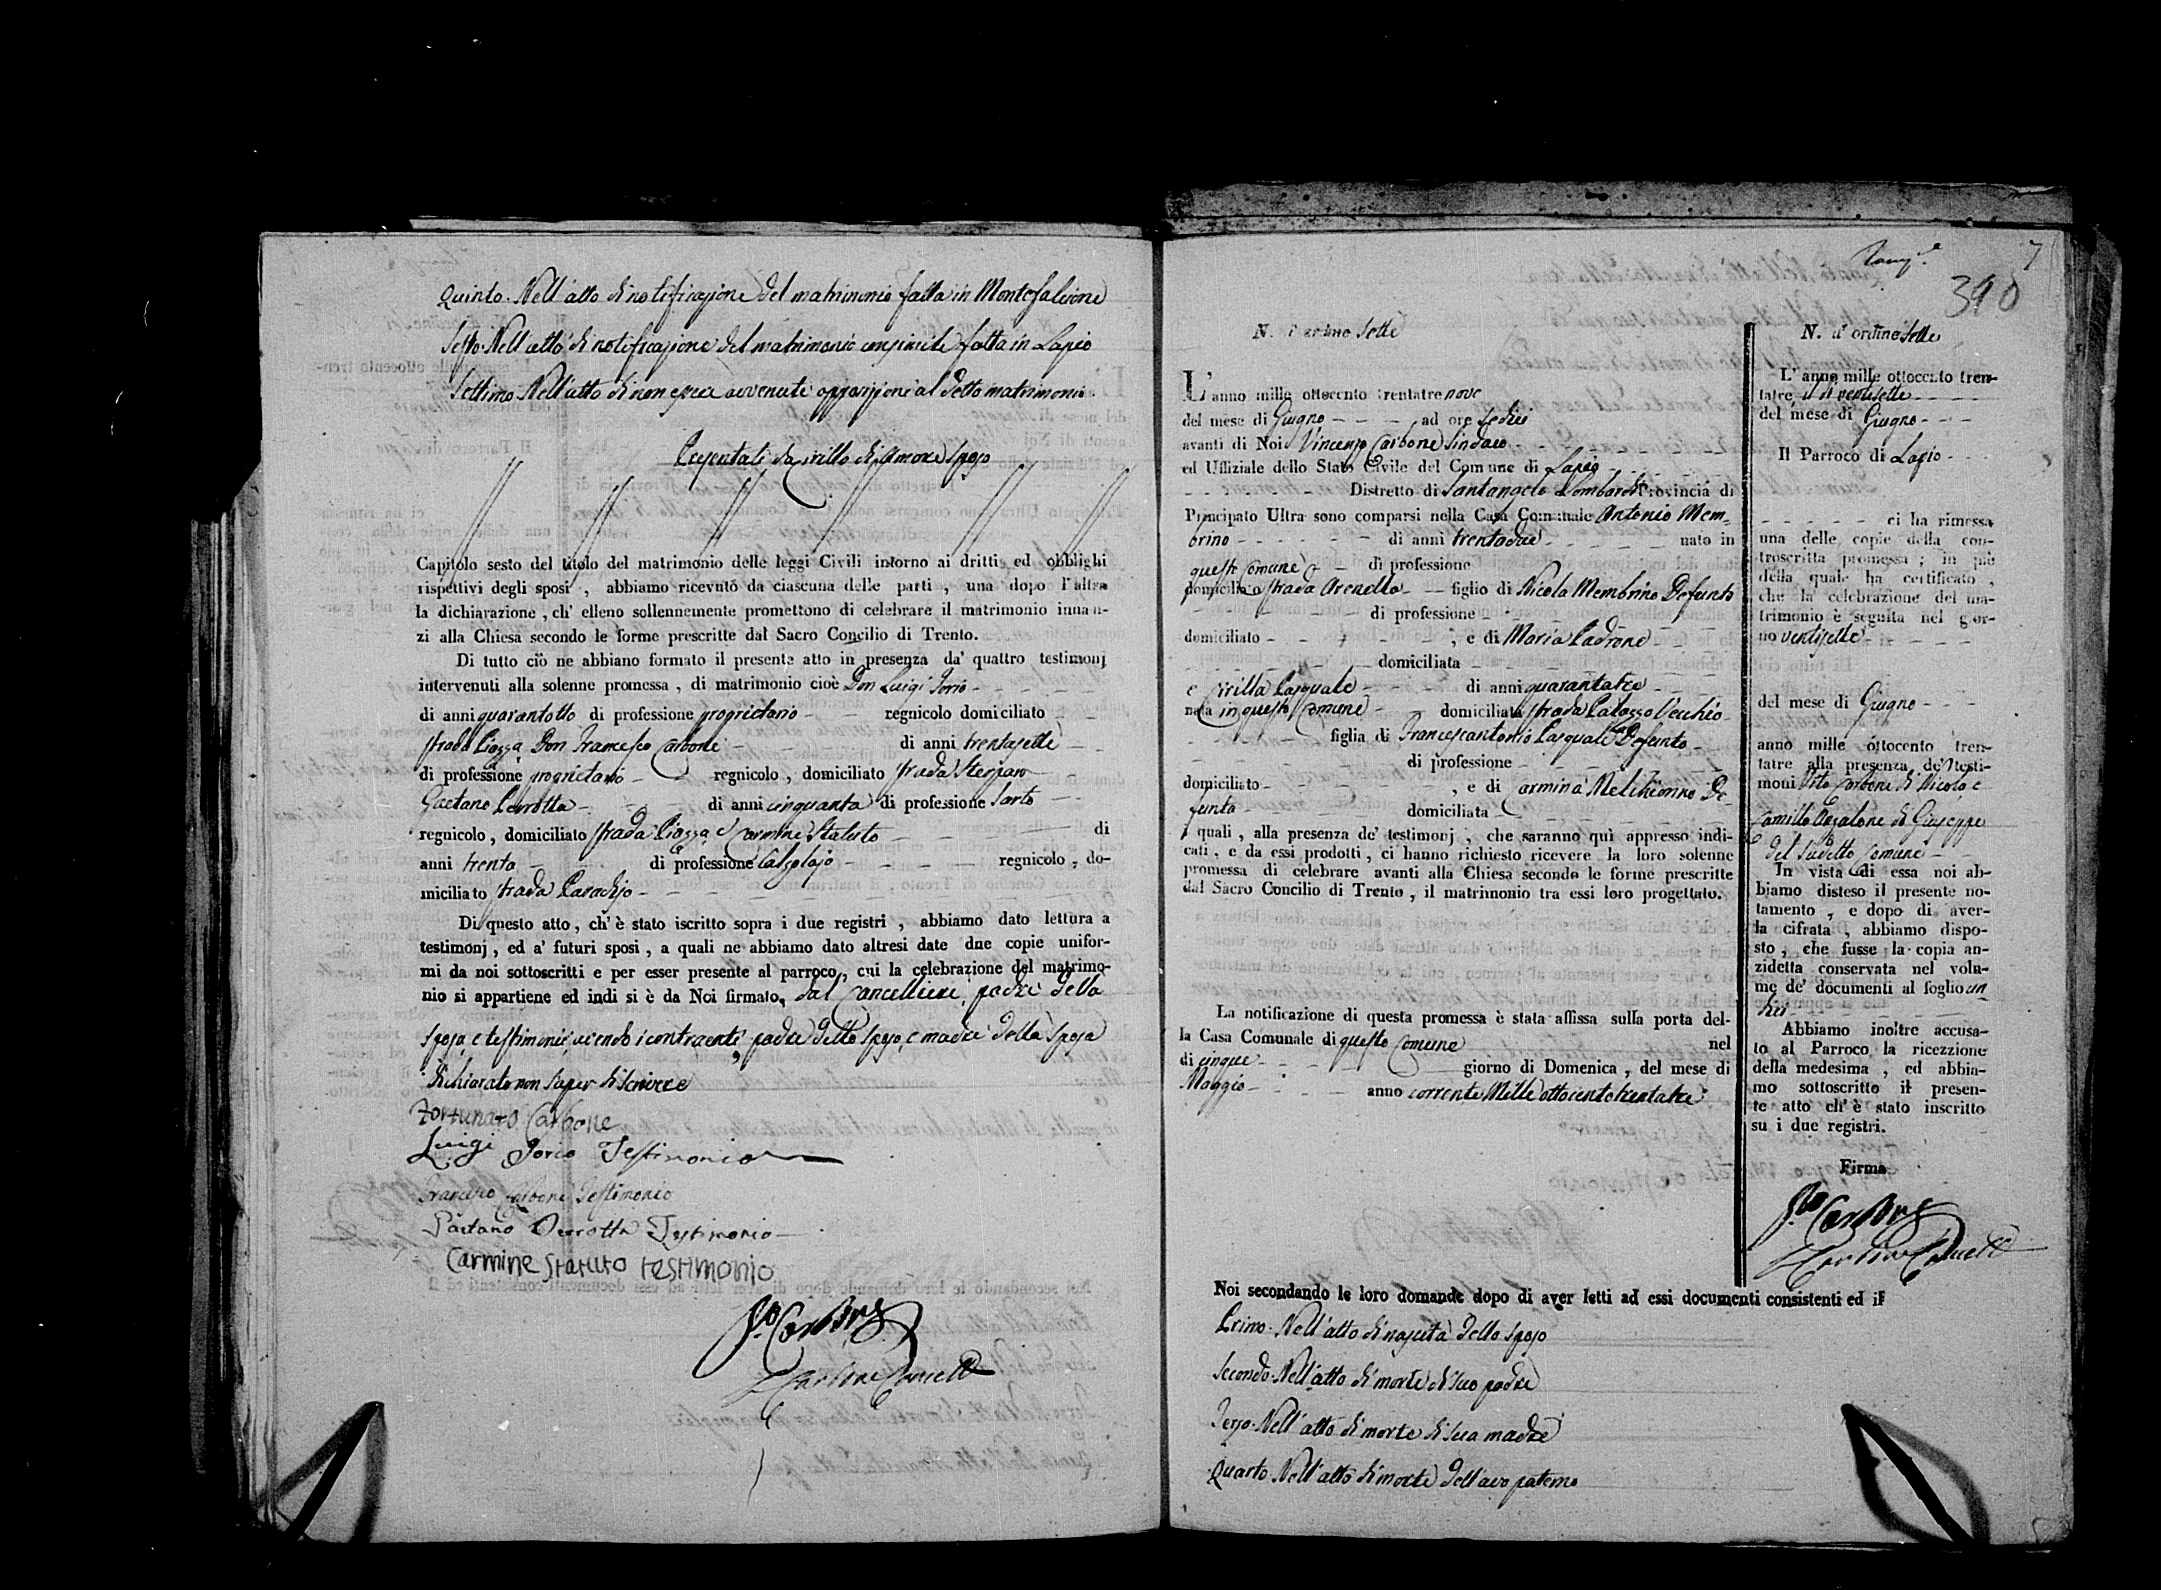 Quinto. Nell'atto di notificazione del matrimonio fatta in Montefalcione
Sesto. Nell'atto di notificazione del matrimonio consimile fatta in Lapio
Settimo. Nell'atto di non essere avvenute opposizioni al detto matrimonio
Presentati da Cirillo di Amore Sposo
Capitolo sesto del titolo del matrimonio delle leggi Civili intorno ai dritti ed obblighi
rispettivi degli sposi , abbiamo ricevuto da ciascuna delle parti , una dopo l'altra
la dichiarazione , ch' elleno sollennemente promettono di celebrare il matrimonio innan-
zi alla Chiesa secondo le forme prescritte dal Sacro Concilio di Trento.
Di tutto ciò ne abbiano formato il presente atto in presenza da' quattro testimonj
intervenuti alla solenne promessa , di matrimonio cioè Don Luigi Iorio
di anni quarantotto di professione proprietario regnicolo domiciliato
strada Piazza Don Francesco Carbone di anni trentasette
di professione proprietario regnicolo , domiciliato strada
Gaetano Perrotta di anni cinquanta di professione Sarto
regnicolo , domiciliato strada Piazza e Carmine Statuto di
anni trenta di professione Calzolajo regnicolo , do-
miciliato strada
Di questo atto , ch' è stato iscritto sopra i due registri , abbiamo dato lettura a
testimonj , ed a' futuri sposi , a quali ne abbiamo dato altresi date due copie unifor-
mi da noi sottoscritti e per esser presente al parroco , cui la celebrazione del matrimo-
nio si appartiene ed indi si è da Noi firmato, dal Cancelliere, padre della
sposa, e testimonii avendo i contraenti, padre dello sposo, e madre della sposa
dichiarato non saper di scrivere
Fortunato Carbone
Luigi Iorio Testimonio
Francesco Carbone Testimonio
Gaetano Perrotta Testimonio
Carmine Statuto testimonio
Carbone
7
390
N. d'ordine Sette
L'anno mille ottocento trentatre nove
del mese di Giugno ad ore sedici
avanti di Noi Vincenzo Carbone Sindaco
ed Uffiziale dello Stato Civile del Comune di Lapio
Distretto di Santangelo Lombardi Provincia di
Principato Ultra sono comparsi nella Casa Comunale Antonio Mem-
brino di anni trentadue nato in
questo Comune di professione
domiciliato strada Arenella figlio di Nicola Membrino Defunto
di professione
domiciliato , e di Maria Padrone
domiciliata
e Cirilla Pasquale di anni quarantatre
nata in questo Comune domiciliata strada Palazzo Vecchio
figlia di Francescantonio Pasquale Defunto
di professione
domiciliato , e di Carmina Melchionno De-
funta domiciliata
i quali , alla presenza de' testimonj , che saranno quì appresso indi-
cati , e da essi prodotti , ci hanno richiesto ricevere la loro solenne
promessa di celebrare avanti alla Chiesa secondo le forme prescritte
dal Sacro Concilio di Trento , il matrimonio tra essi loro progettato.
La notificazione di questa promessa è stata affissa sulla porta del-
la Casa Comunale di questo Comune nel
di cinque giorno di Domenica , del mese di
Maggio anno corrente Mille ottocento trentatre
N. d'ordine Sette
L'anno mille ottocento tren-
tatre il dì ventisette
del mese di Giugno
Il Parroco di Lapio
ci ha rimessa
una delle copie della con-
troscritta promessa ; in piè
della quale ha certificato ,
che la celebrazione del ma-
trimonio è seguita nel gior-
no ventisette
del mese di Giugno
anno mille ottocento tren-
tatre alla presenza de' testi-
moni Vito Carbone di Nicola e
Camillo di Giuseppe
del sudetto Comune
In vista di essa noi ab-
biamo disteso il presente no-
tamento , e dopo di aver-
la cifrata , abbiamo dispo-
sto , che fusse la copia an-
zidetta conservata nel volu-
me de' documenti al foglio
Abbiamo inoltre accusa-
to al Parroco la ricezzione
della medesima , ed abbia-
mo sottoscritto il presen-
te atto ch' è stato inscritto
su i due registri.
Firma
Carbone
Noi secondando le loro domande dopo di aver letti ad essi documenti consistenti ed il
Primo. Nell'atto di nascita dello sposo
Secondo. Nell'atto di morte di suo padre
Terzo. Nell'atto di morte di sua madre
Quarto. Nell'atto di morte dell'avo paterno